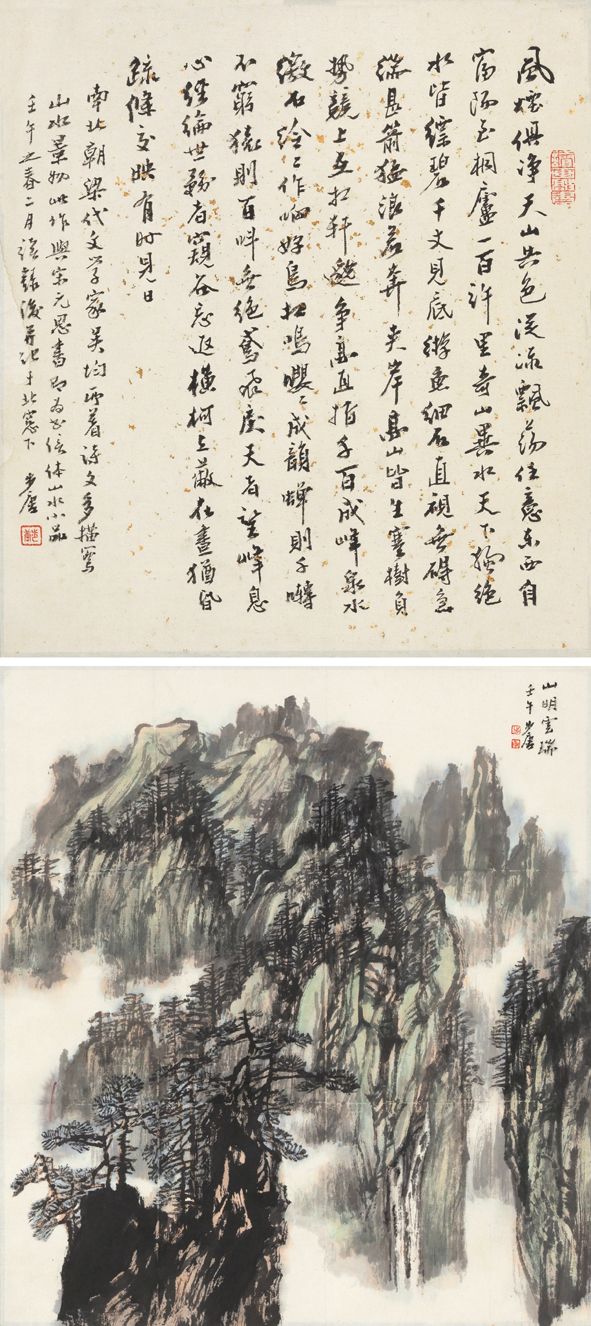 風煙俱净天山共色從流飄蕩任意東西自
富陽至桐廬一百許里奇山異水天下獨絶
水皆縹碧千丈見底游魚細石直視無礙急
湍甚箭猛浪若奔夹岸高山皆生寒樹負
勢競上互相軒邈争高直指千百成峰泉水
激石泠泠作响好鳥相鳴嚶嚶成韻蟬則千囀
不窮猿則百叫無絶鳶飛戾天者望峰息
心經綸世務者窺谷忘返橫柯上蔽在晝猶昏
疏條交映有時見日
南北朝梁代文学家吴均所著詩文多描寫
山水景物此作與宋元思書即為
山水小品
壬午之春二月
於北窓下
步唐
山明雲瑞
壬午步唐